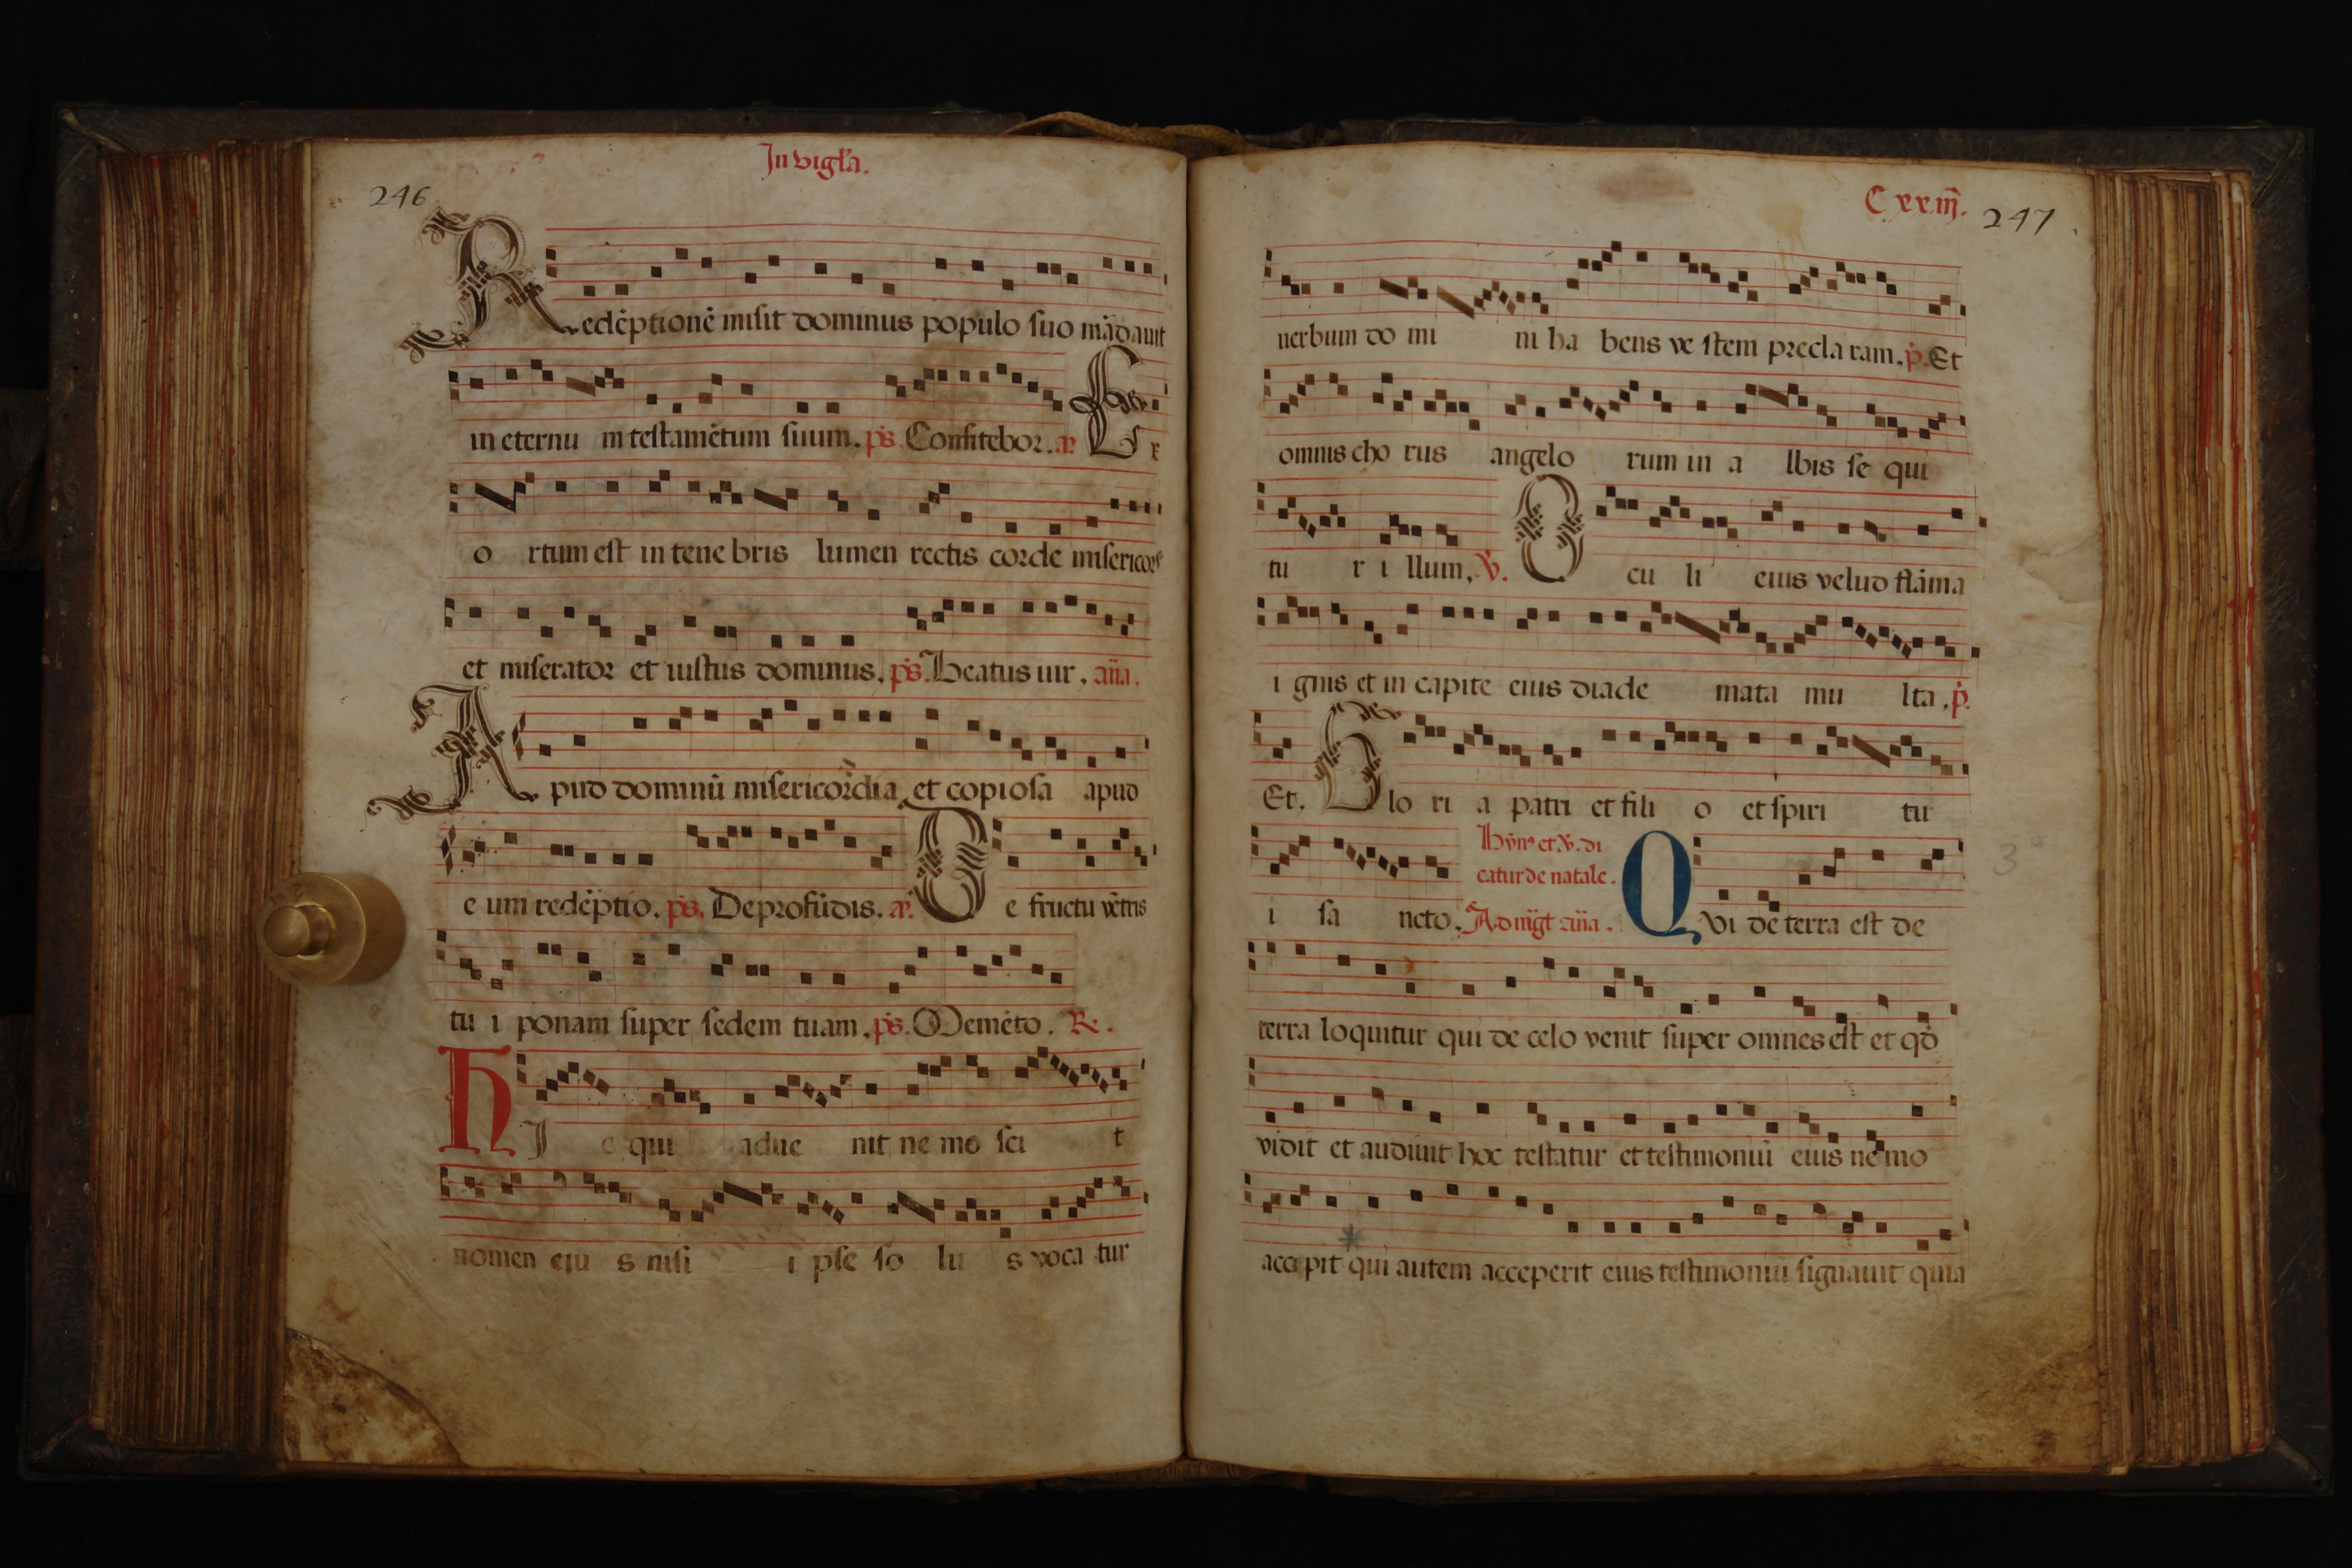 In vigl'a.
246
Redẽptionẽ misit dominus populo suo mãdauit
in eternu m testamẽtum suum. ps̃. Confitebor. añ. Ex
o rtum est in tene bris lumen rectis corde misericors
et miserator et iustus dominus. ps̃. Beatus uir. añа.
Apud dominũ misericordia et copiosa apud
e um redẽptio. ps̃. De profũdis. añ. De fructu vẽtris
tu i ponam super sedem tuam. ps̃. Memẽto. R.
HI c qui adue nit ne mo sci t
nomen eju s nisi i pse so lu s voca tur
C xx.iij.
247
uerbum do mi ni ha bens ve stem precla ram. p̃. Et
omnis cho rus angelo rum in a lbis se qui
tu r i llum. V. O cu li eius velud flãma
i gnis et in capite eius diade mata mu lta. p̃.
Et. Glo ri a patri et fili o et spiri tu
Hỹn9 et V. di
catur de natale.
i sa ncto. Ad mg̃t añа. QVi de terra est de
terra loquitur qui de celo venit super omnes est et qd̃
3º
vidit et audiuit hoc testatur et testimoniũ eius nemo
accepit qui autem acceperit eius testimoniũ signauit quia